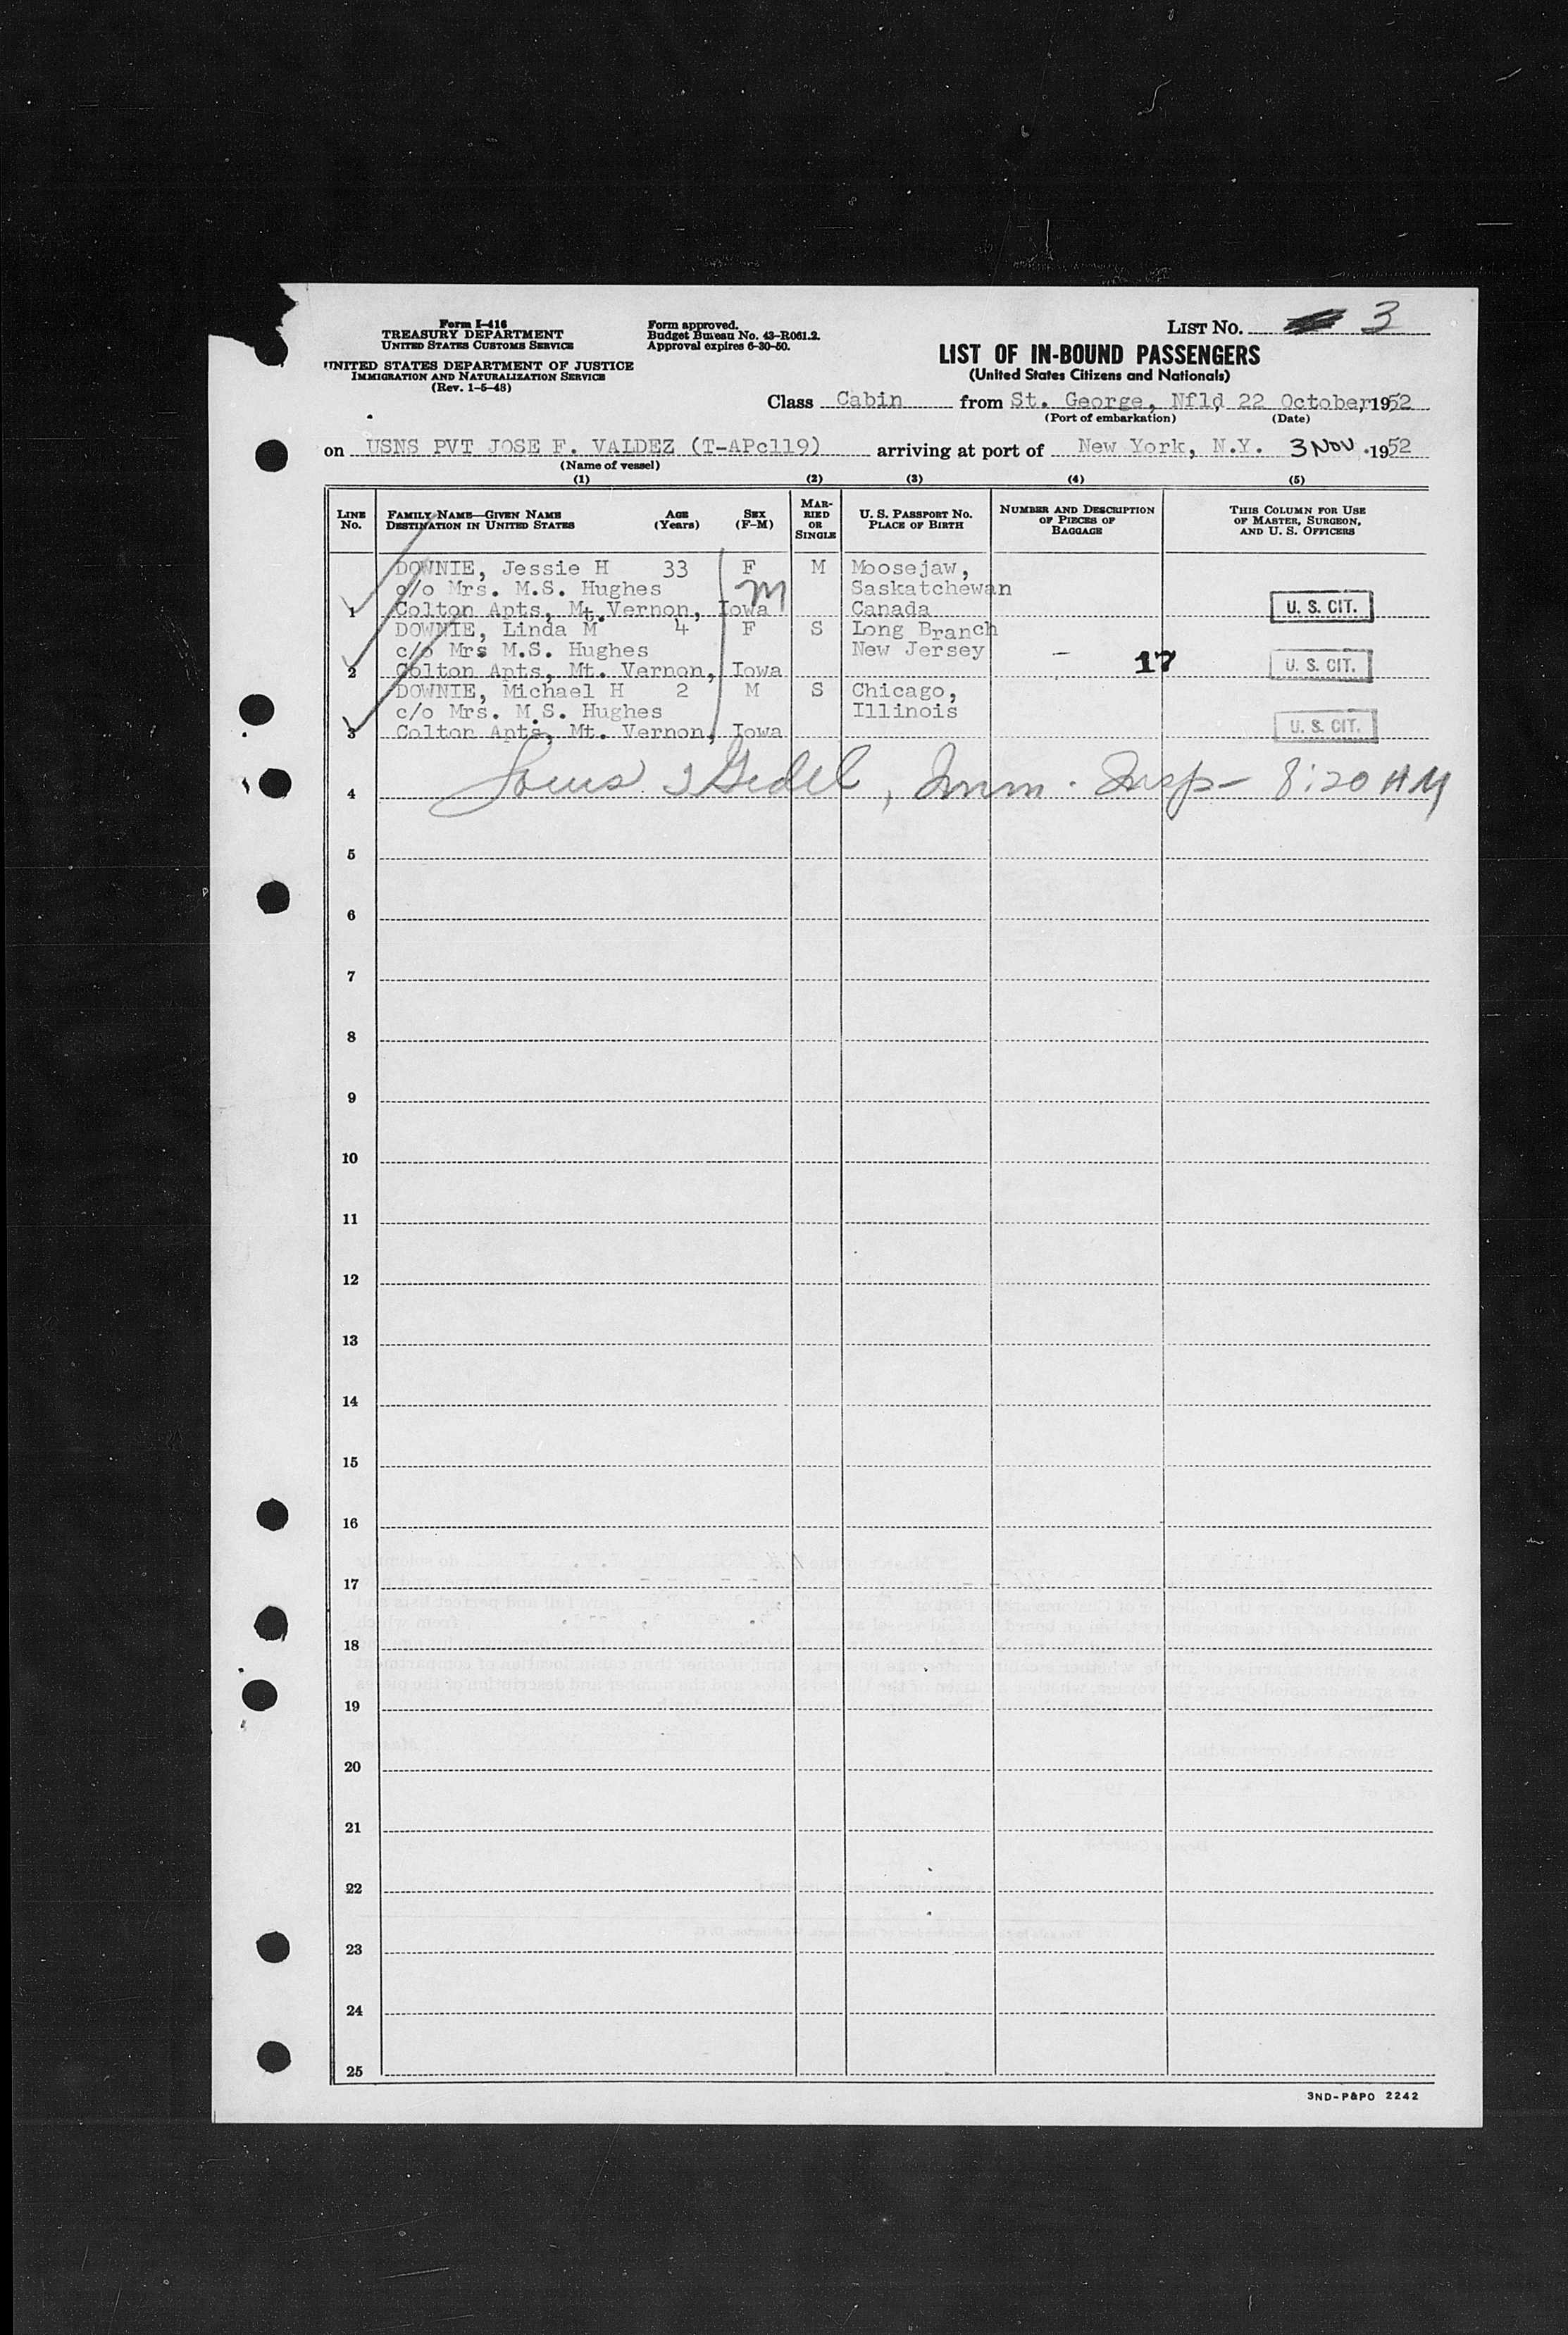 Form I-416
TREASURY DEPARTMENT
UNITED STATES CUSTOMS SERVICE
UNITED STATES DEPARTMENT OF JUSTICE
IMMIGRATION AND NATURALIZATION SERVICE
(Rev. 1-5-48)
Form approved.
Budget Bureau No. 43-R061.2.
Approval expires 6-30-50.
LIST NO. 3
LIST OF IN-BOUND PASSENGERS
(United States Citizens and Nationals)
Class Cabin from St. George, Nfld, 22 October, 1952
(Port of embarkation) (Date)
on USNS PVT JOSE F. VALDEZ (T-APc119) arriving at port of New York, N.Y. 3 Nov. 1952
(Name of vessel)
(1) (2) (3) (4) (5)
LINE No.
FAMILY NAME—GIVEN NAME
DESTINATION IN UNITED STATES
AGE
(Years)
SEX
(F-M)
MARRIED OR SINGLE
U. S. PASSPORT NO.
PLACE OF BIRTH
NUMBER AND DESCRIPTION
OF PIECES OF
BAGGAGE
THIS COLUMN FOR USE
OF MASTER, SURGEON,
AND U. S. OFFICERS
DOWNIE, Jessie H 33 F M Moosejaw,
c/o Mrs. M.S. Hughes m Saskatchewan
1 Colton Apts, Mt. Vernon, Iowa Canada U. S. CIT.
DOWNIE, Linda M 4 F S Long Branch
c/o Mrs M.S. Hughes New Jersey
2 Colton Apts, Mt. Vernon, Iowa - 17 U. S. CIT.
DOWNIE, Michael H 2 M S Chicago,
c/o Mrs. M.S. Hughes Illinois
3 Colton Apts, Mt. Vernon, Iowa U. S. CIT.
4 Imm. Insp- 8:20 AM
5
6
7
8
9
10
11
12
13
14
15
16
17
18
19
20
21
22
23
24
25
3ND-P&PO 2242